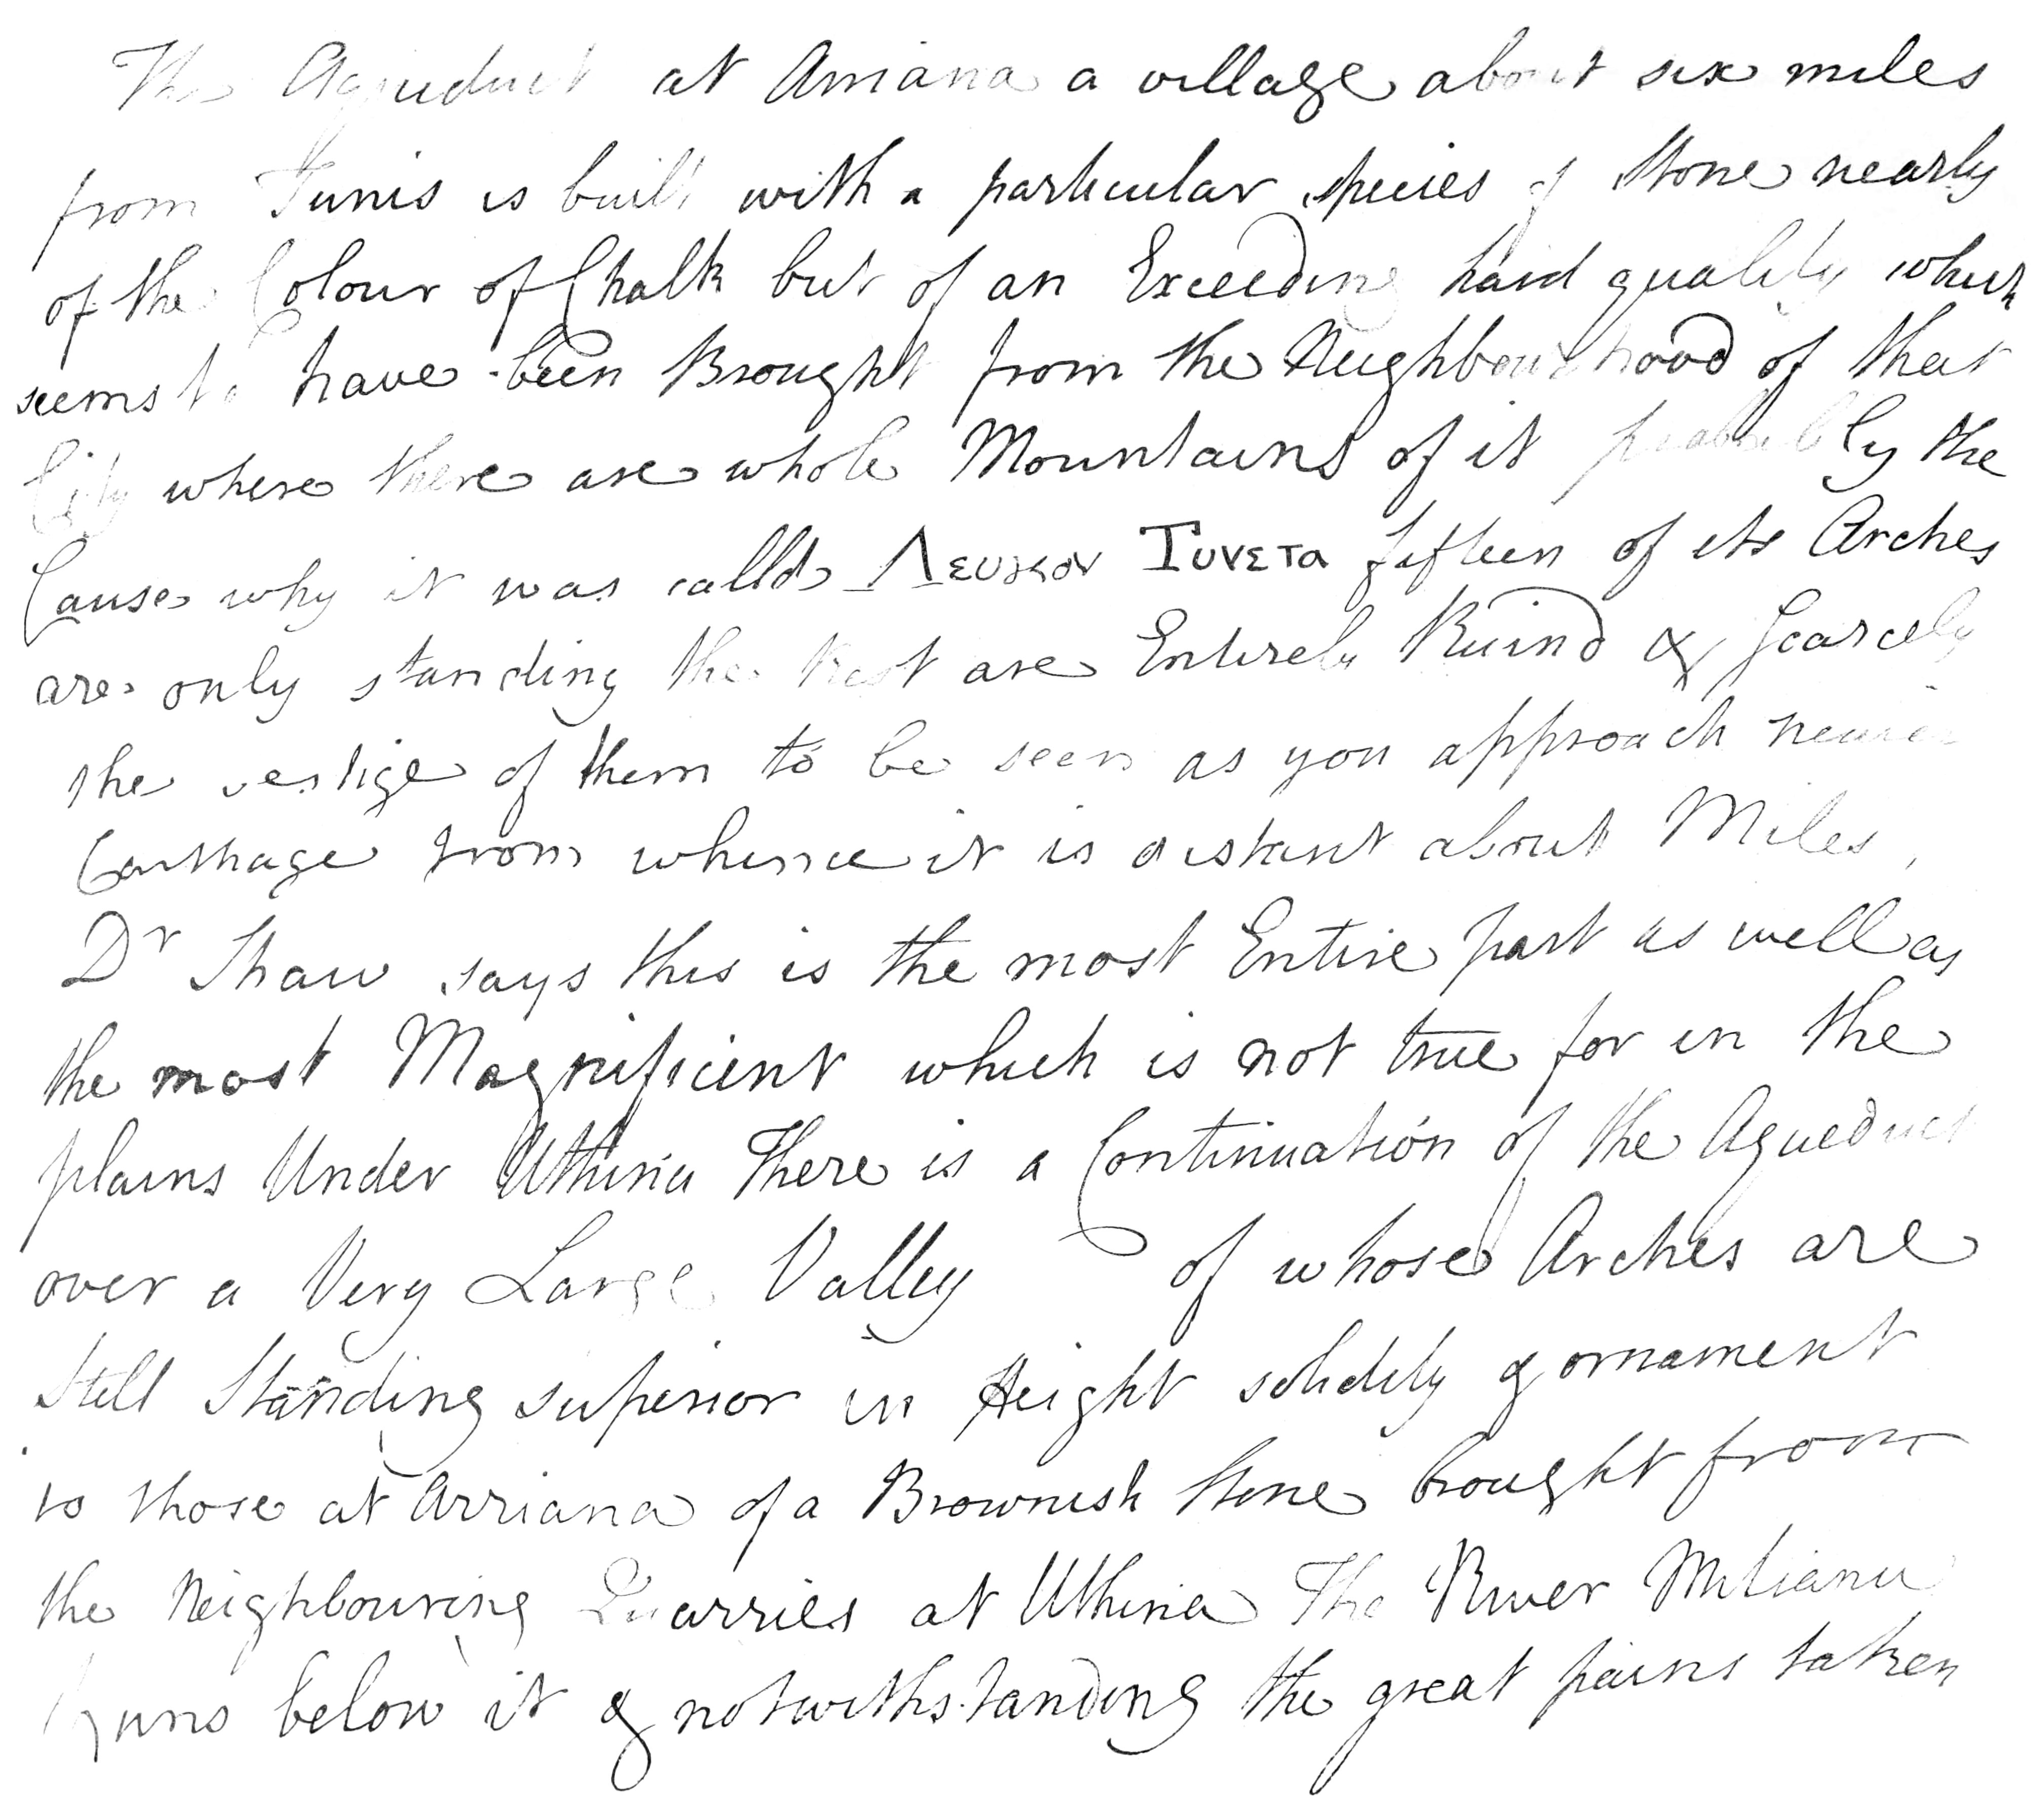 The Aqueduct at Arriana a village about six miles
from Tunis is built with a particular species of Stone nearly
of the Colour of Chalk but of an Exceeding hard quality which
seems to have been Brought from the Neighbourhood of that
City where there are whole Mountains of it probably the
Cause why it was calld Λευκον Τυνετα fifteen of its Arches
are only standing the Rest are Entirely Ruind & Scarcely
the vestige of them to be seen as you approach nearer
Carthage from whence it is distant about Miles,
Dr Shaw says this is the most Entire part as well as
the most Magnificent which is not true for in the
plains Under Uthina There is a Continuation of the Aqueduct
over a Very Large Valley of whose Arches are
Still Standing superior in Height solidity & ornament
to those at Arriana of a Brownish Stone brought from
the Neighbouring Quarries at Uthina The River Miliana
Runs below it & notwithstanding the great pains taken